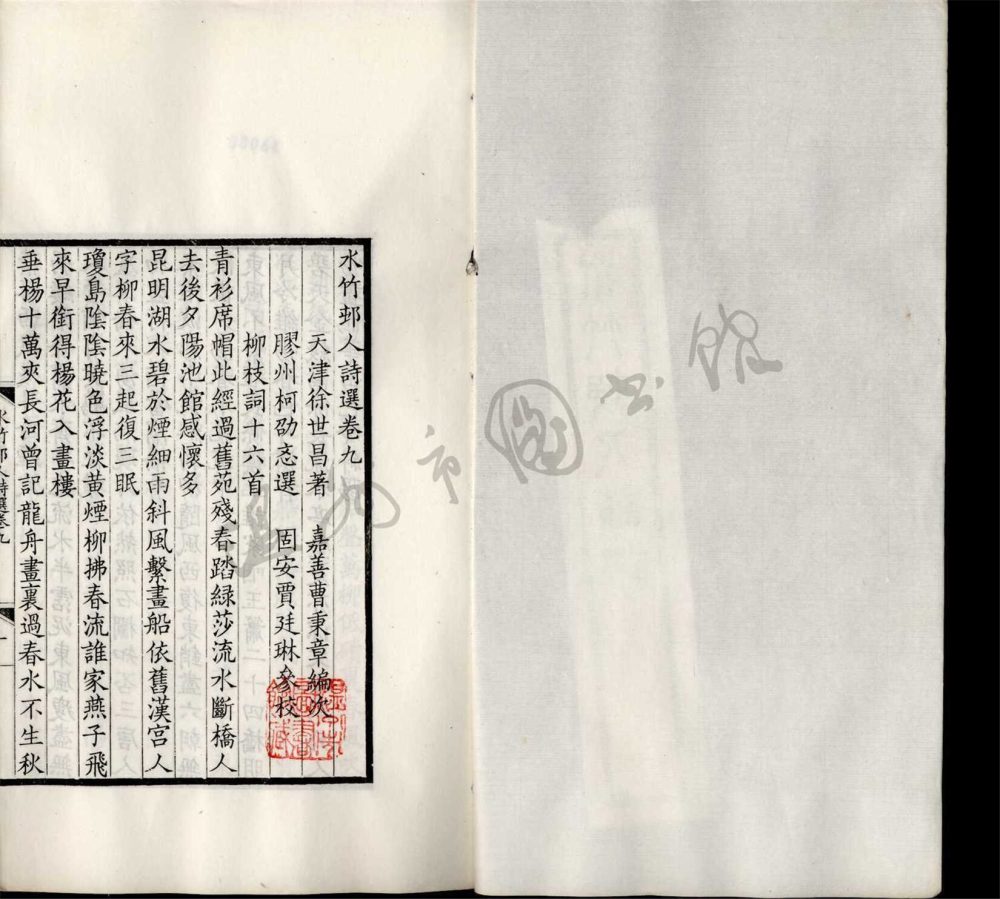 水竹邨人詩選卷九
天津徐世昌著　嘉善曹秉章編次
膠州柯劭忞選　固安賈廷琳參校
柳枝詞十六首
青衫席帽此經過舊苑殘春踏綠莎流水斷橋人
去後夕陽池館感懷多
昆明湖水碧於煙細雨斜風繫畫船依舊漢宮人
字柳春來三起復三眠
瓊島陰陰曉色浮淡黃煙柳拂春流誰家燕子飛
來早銜得楊花入畫樓
垂楊十萬夾長河曾記龍舟畫裏過春水不生秋
水竹邨人詩選卷九
一
市圖書館